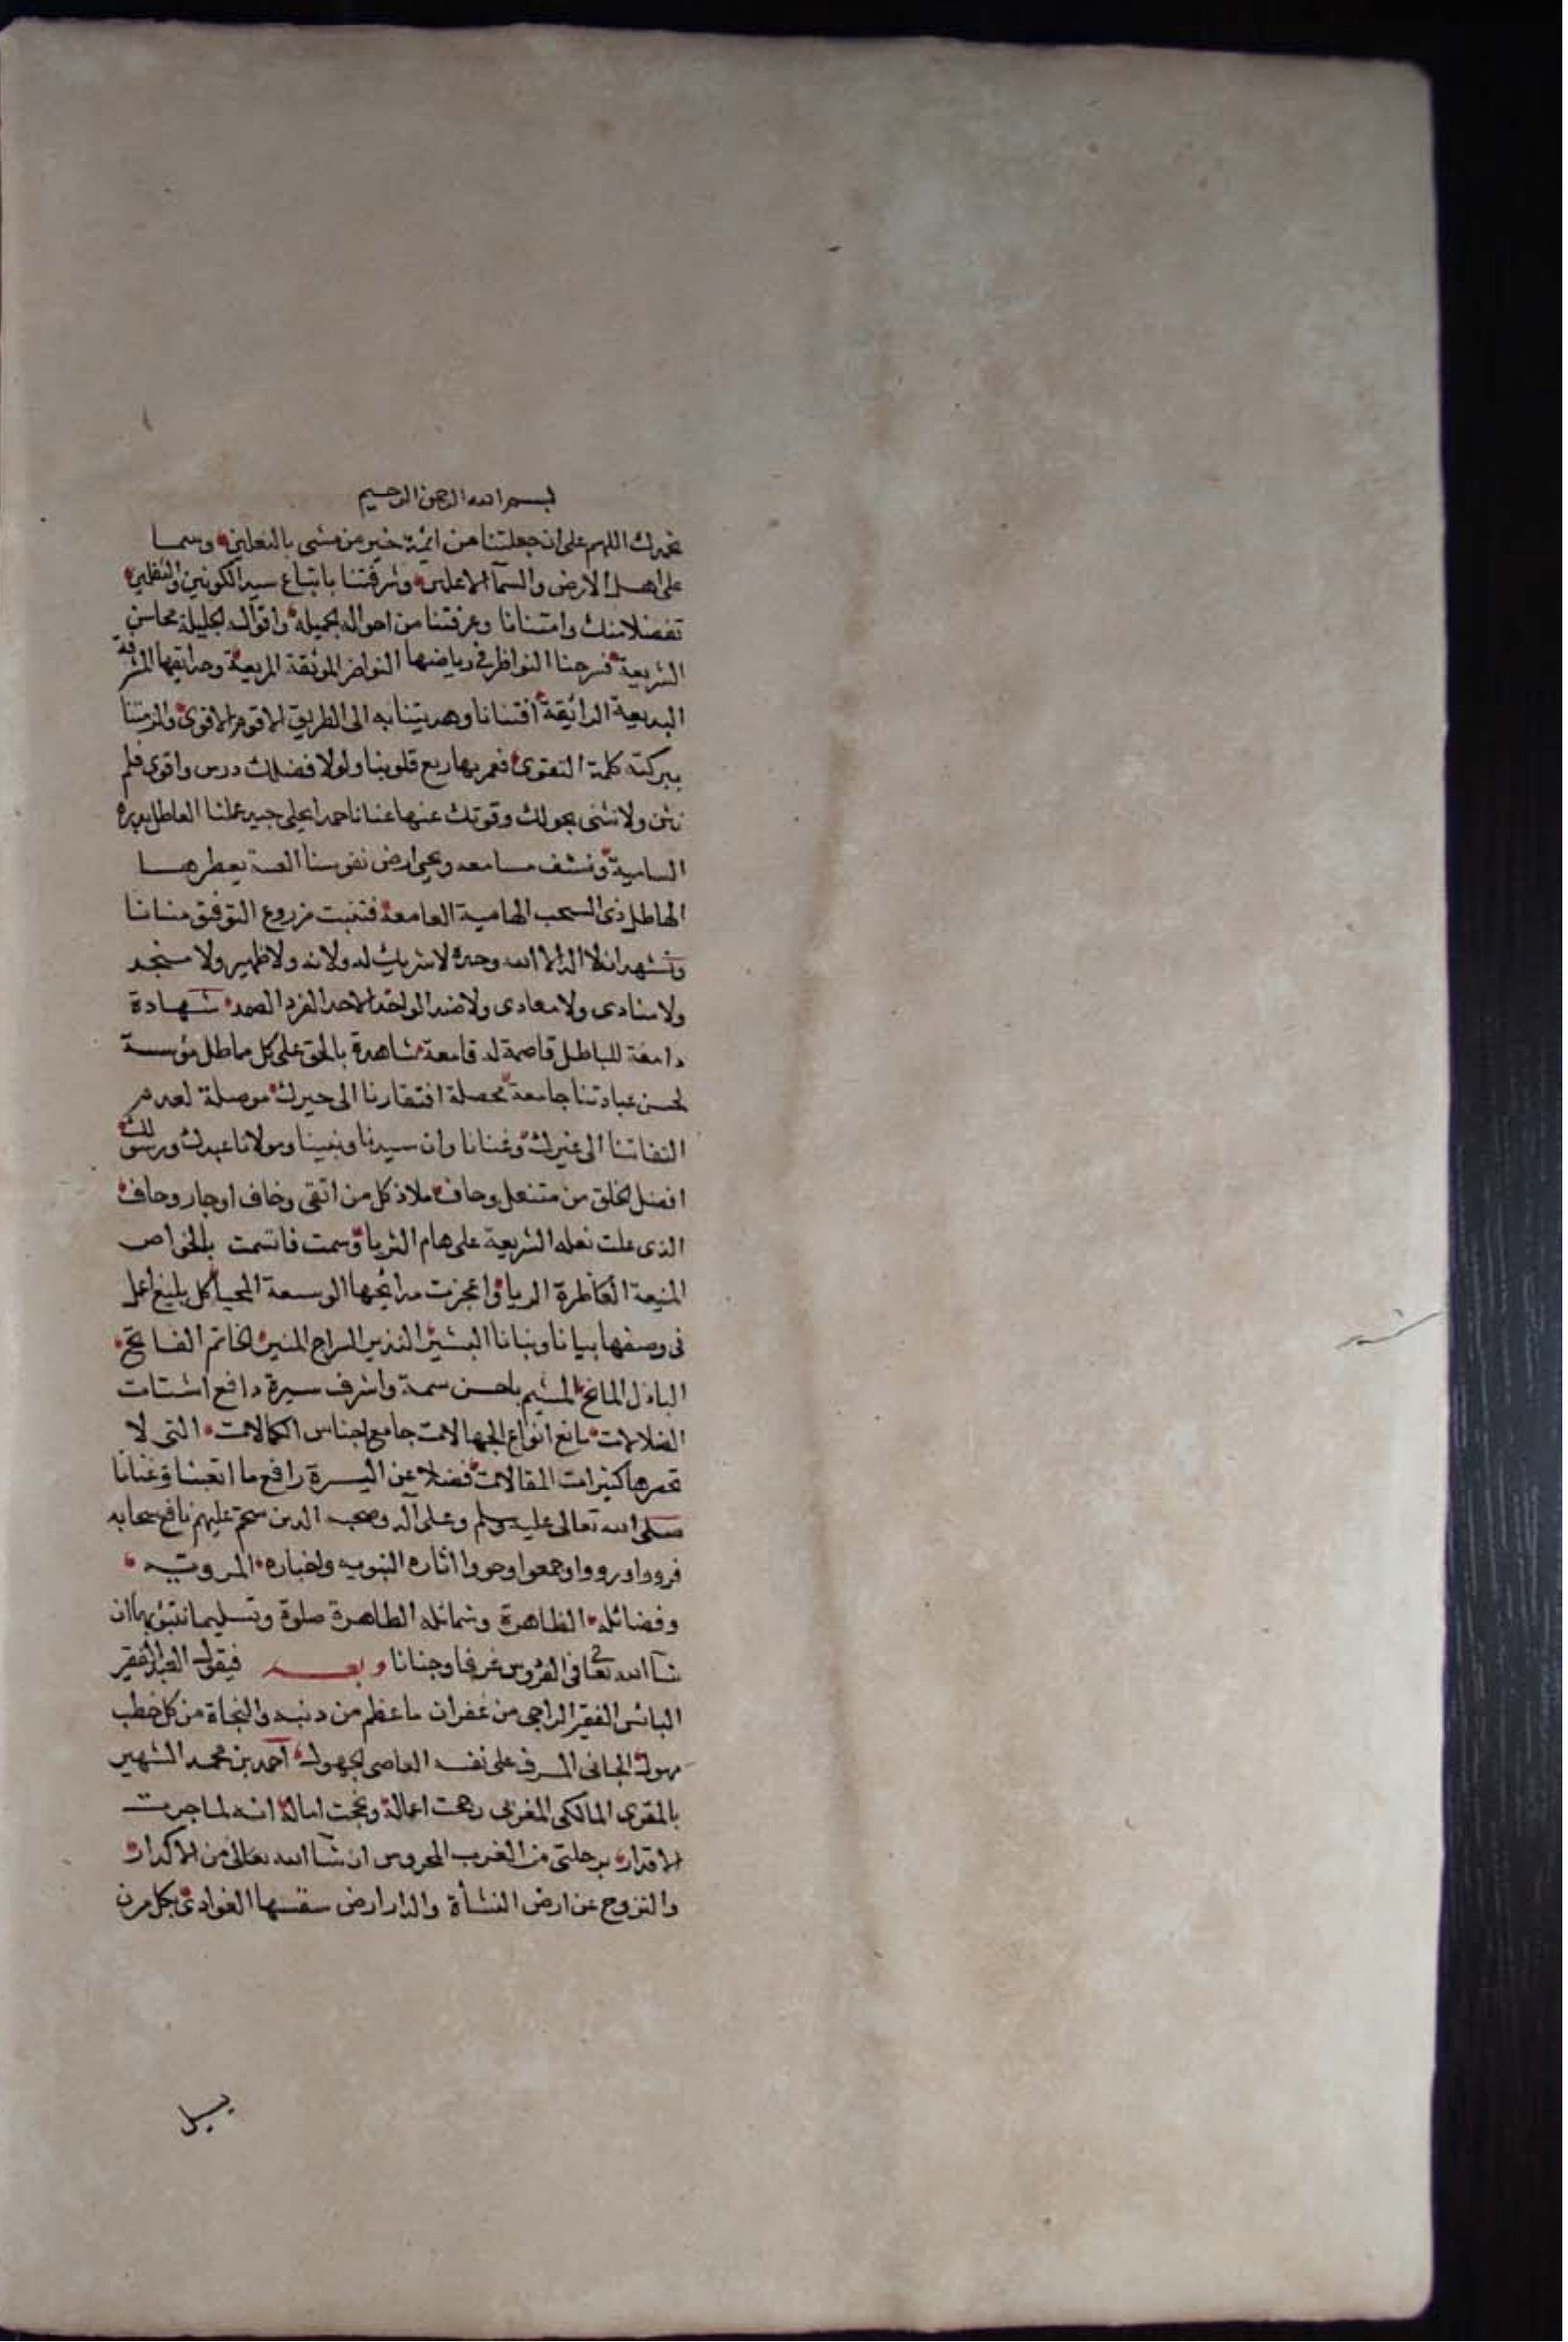 بسم الله الرحمن الرحيم
نحمدك اللهم على ان جعلتنا من امة خير من مشى بالنعلين وسما
على اهل الارض والسمآ الاعلين وشرفتنا باتباع سيد الكونين والثقلين
تفضلا منك وامتنانا وعرفتنا من احواله الجميلة واقواله الجليلة محاسن
الشريعة فسرحنا النواظر في رياضها النواضر المونقة المريعة وحدايقها المشرقة
البديعة الرائقة افتنانا وهديتنا به الى الطريق الاقوم الاقوى والزمتنا
ببركته كلمة التقوى فعمر بها ربع قلوبنا ولولا فضلك درس واقوى فلم
نثن ولا نثنى بحولك وقوتك عنها عنانا حمدا يحلى جيد عملنا العاطل بدره
السامية ونشف مسامعه ويحي ارض نفوسنا بعطرها
الهاطل ذى السحب الهامية الهامعة فتنبت مزروع التوفيق منانا
ونشهد ان لا اله الا الله وحده لا شريك له ولا ند ولا ظهير ولا منجد
ولا منادى ولا معادى ولا ضد الواحد الاحد الفرد الصمد شهادة
دامغة للباطل قاصمة له قامعة شاهدة بالحق على كل مماطل مؤسسة
لحسن عبادتنا جامعة محصلة افتقارنا الى خيرك موصلة لعدم
التفاتنا الى غيرك وغنانا وان سيدنا ونبينا ومولانا عبدك ورسولك
افضل الخلق من متنعل وحاف ملاذ كل من اتقى وخاف اوجار وحاف
الذى علت نعله الشريعة على هام الثريا وسمت فاتسمت بالخواص
المنيعة العاطرة الريا واعجزت مدائحها الوسيمة المحيا كل بليغ اعمل
فى وصفها بيانا وبنانا البشير النذير السراج المنير الخاتم الفاتح
الباذل المانح المشيم باحسن سمة واشرف سيرة دافع اشتات
الضلالات مانع انواع الجهالات جامع اجناس الكمالات التى لا
تحصرها كثيرات المقالات فضلا عن اليسيرة رافع ما اتعبنا وعنانا
صلى الله تعالى عليه وسلم وعلى آله وصحبه الذين سح عليهم نافع سحابه
فرووا ورووا وجمعوا وحووا اثاره النبويه واخباره المرويه
وفضائله الظاهرة وشمائله الطاهرة صلوة وتسليما نتبوء بها ان
شآ الله تعالى فى الفردوس غرفا وجنانا وبعد فيقول العبد الفقير
البائس الفقير الراجى من غفران ما عظم من ذنبه والنجاة من كل خطب
مهول الجانى المسرف على نفسه العاصى الجهول احمد بن محمد الشهير
بالمقرى المالكى المغربى ربحت اعماله ونجحت اماله انه لما جرت
الاقدار برحلتى من الغرب المحروس ان شآ الله تعالى من الاكدار
والنزوح عن ارض النشأة والدار ارض سقتها الغوادى بكل مرن
يسيل